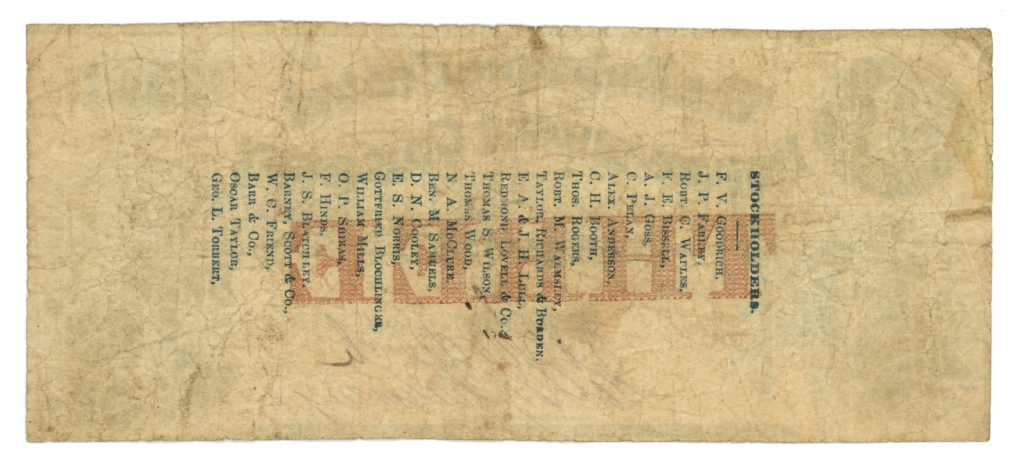 STOCKHOLDERS.
F. V. GOODRICH,
J. P. FARLEY
ROBT. C. WAPLES,
F. E. BISSELL,
A. J. GOSS.
C. PELAN,
ALEX. ANDERSON,
C. H. BOOTH,
THOS. ROGERS,
ROBT. M. WAUMSLEY,
TAYLOR, RICHARDS & BURDEN,
E. A. & J. H. LULL,
REDMOND, LOVELL & CO.,
THOMAS S. WILSON
THOMAS WOOD,
N. A. MCCLURE.
BEN. M. SAMUELS,
D. N. COOLEY,
E. S. NORRIS,
GOTTFRIED BLOCHLINGER,
WILLIAM MILLS,
O. P. SHIRAS,
F. HINDS,
J. S. BLATCHLEY.
BARNEY, SCOTT & CO.,
W. C. FRIEND,
BARR & CO.,
OSCAR TAYLOR,
GEO. L. TORBERT,